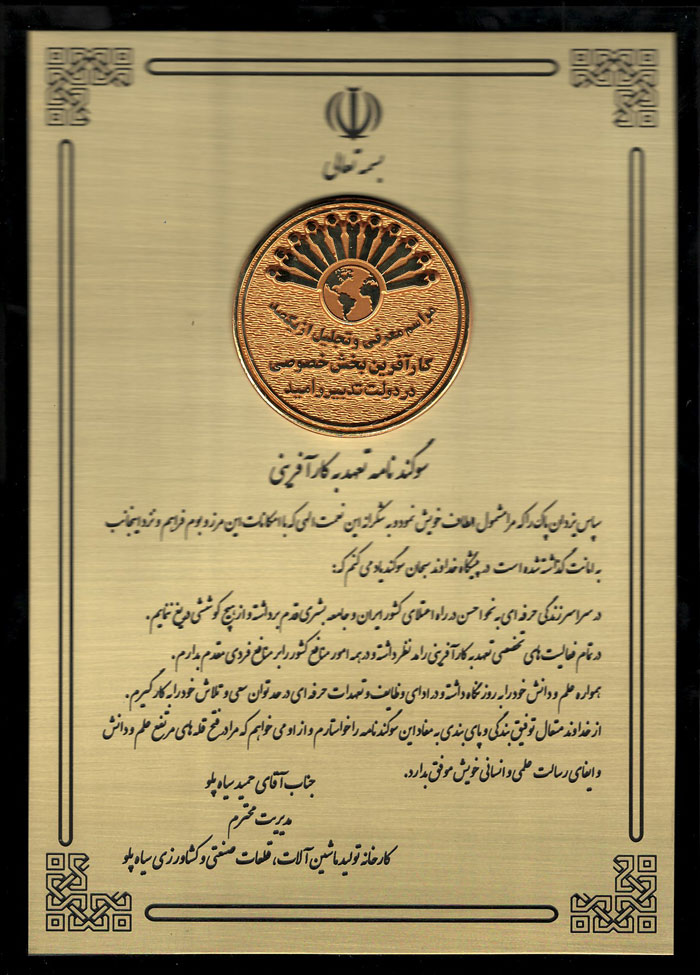 بسمه تعالی
مراسم معرفی و تجلیل از یکصد
کارآفرین بخش خصوصی
در دولت تدبیر و امید
سوگند نامه تعهد به کارآفرینی
سپاس یزدان پاک را که مرا مشمول الطاف خویش نمود و به شکرانه این نعمت الهی که با امکانات این مرز و بوم فراهم و نزد اینجانب
به امانت گذاشته شده است در پیشگاه خداوند سبحان سوگند یاد می کنم که:
در سراسر زندگی حرفه ای به نحو احسن در راه اعتلای کشور ایران و جامعه بشری قدم برداشته و از هیچ کوششی دریغ ننمایم.
در تمام فعالیت های تخصصی تعهد به کارآفرینی را مد نظر داشته و در همه امور منافع کشور را بر منافع فردی مقدم بدارم.
همواره علم و دانش خود را به روز نگاه داشته و در ادای وظایف و تعهدات حرفه ای در حد توان سعی و تلاش خود را به کار گیرم.
از خداوند متعال توفیق بندگی و پای بندی به مفاد این سوگند نامه را خواستارم و از او می خواهم که مرا در فتح قله های مرتفع علم و دانش
و ایفای رسالت علمی و انسانی خویش موفق بدارد.
جناب آقای حمید سیاه پلو
مدیریت محترم
کارخانه تولید ماشین آلات، قطعات صنعتی و کشاورزی سیاه پلو